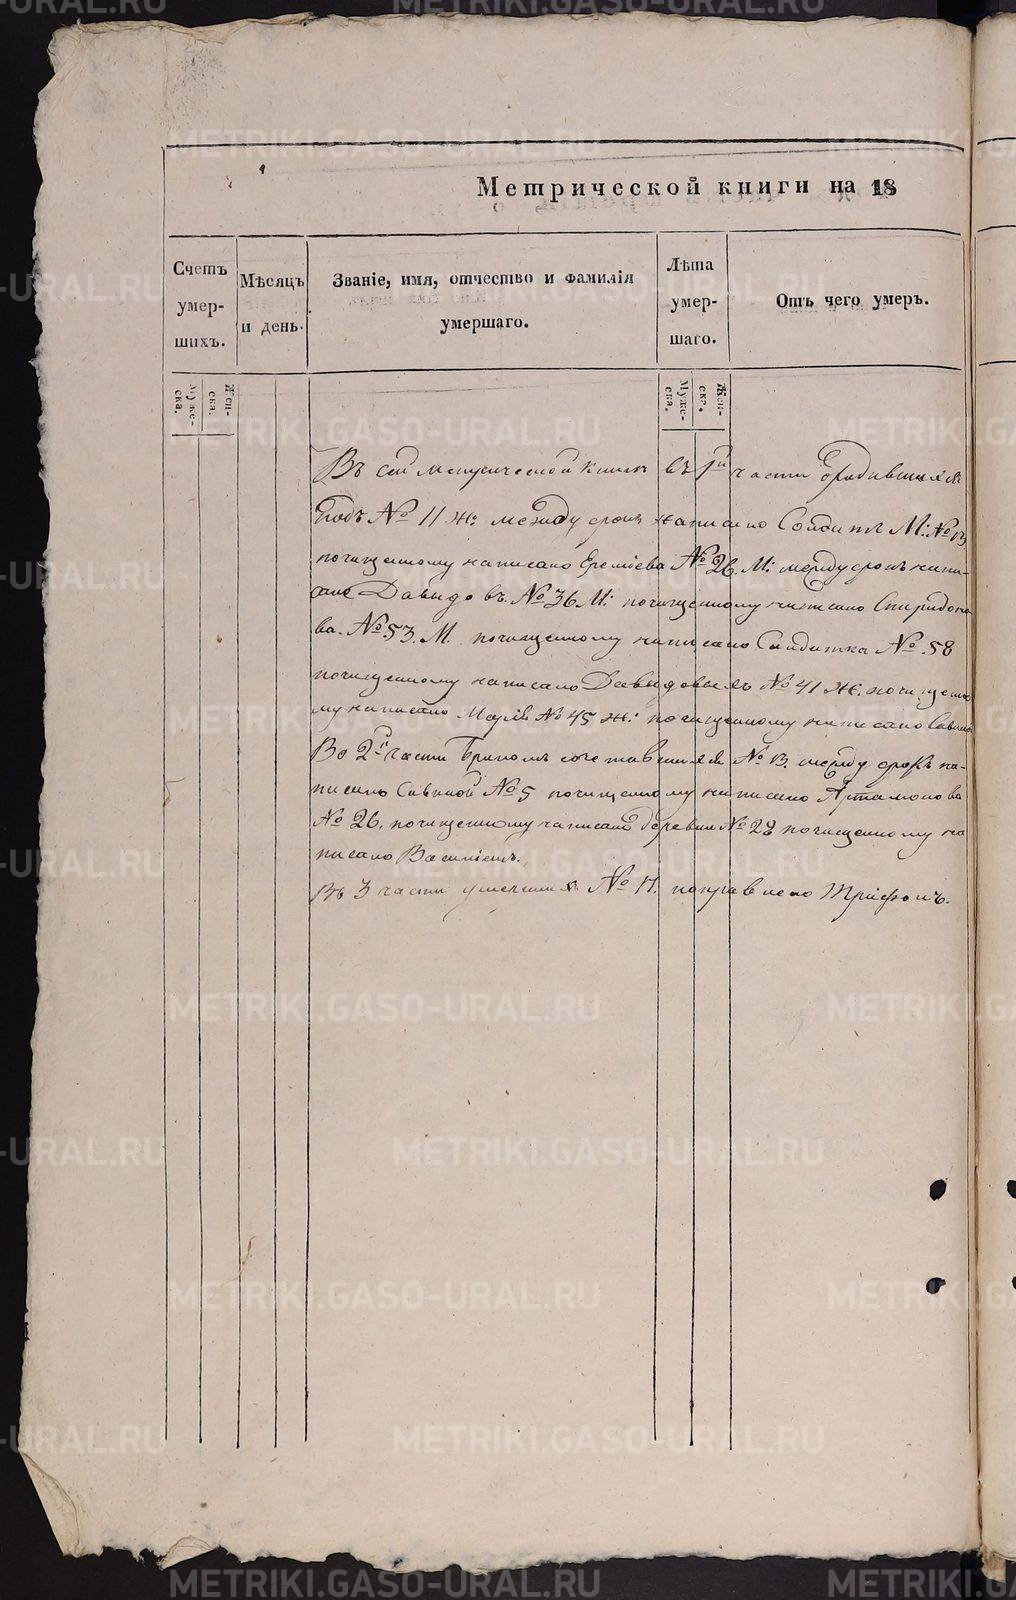 Метрической книги на 18
Счетъ умер- шихъ.
Мѣсяцъ и день.
Званіе, имя, отчество и фамилія умершаго.
Лѣта умер- шаго.
Отъ чего умеръ.
Муже- ска.
Жен- ска.
Муже- ска.
Жен- ска.
Въ сей метрической книгѣ въ 1й части о родившихся
подъ № 11 ж: между строкъ написано М: № 13
почищенному написано Еремѣева № 26. М: между строкъ напи-
сано Давыдовъ. № 36 М: почищенному написано Спиридоно
ва. № 53. М. почищенному написано Солдатка № 58
почищенному написано Давыдовыхъ № 41 ж. почищенно
му написано Марія № 45 ж: почищенному написано
Во 2й части бракомъ сочетавшихся № 13. между строкъ на-
писано Саввиной № 5 почищенному написано Артамонова
№ 26. почищенному написано деревни № 28 почищенному на
писано Василіемъ.
Въ 3 части умершихъ № 17. поправлено Трифонъ.
METRIKI.GASO-URAL.RU